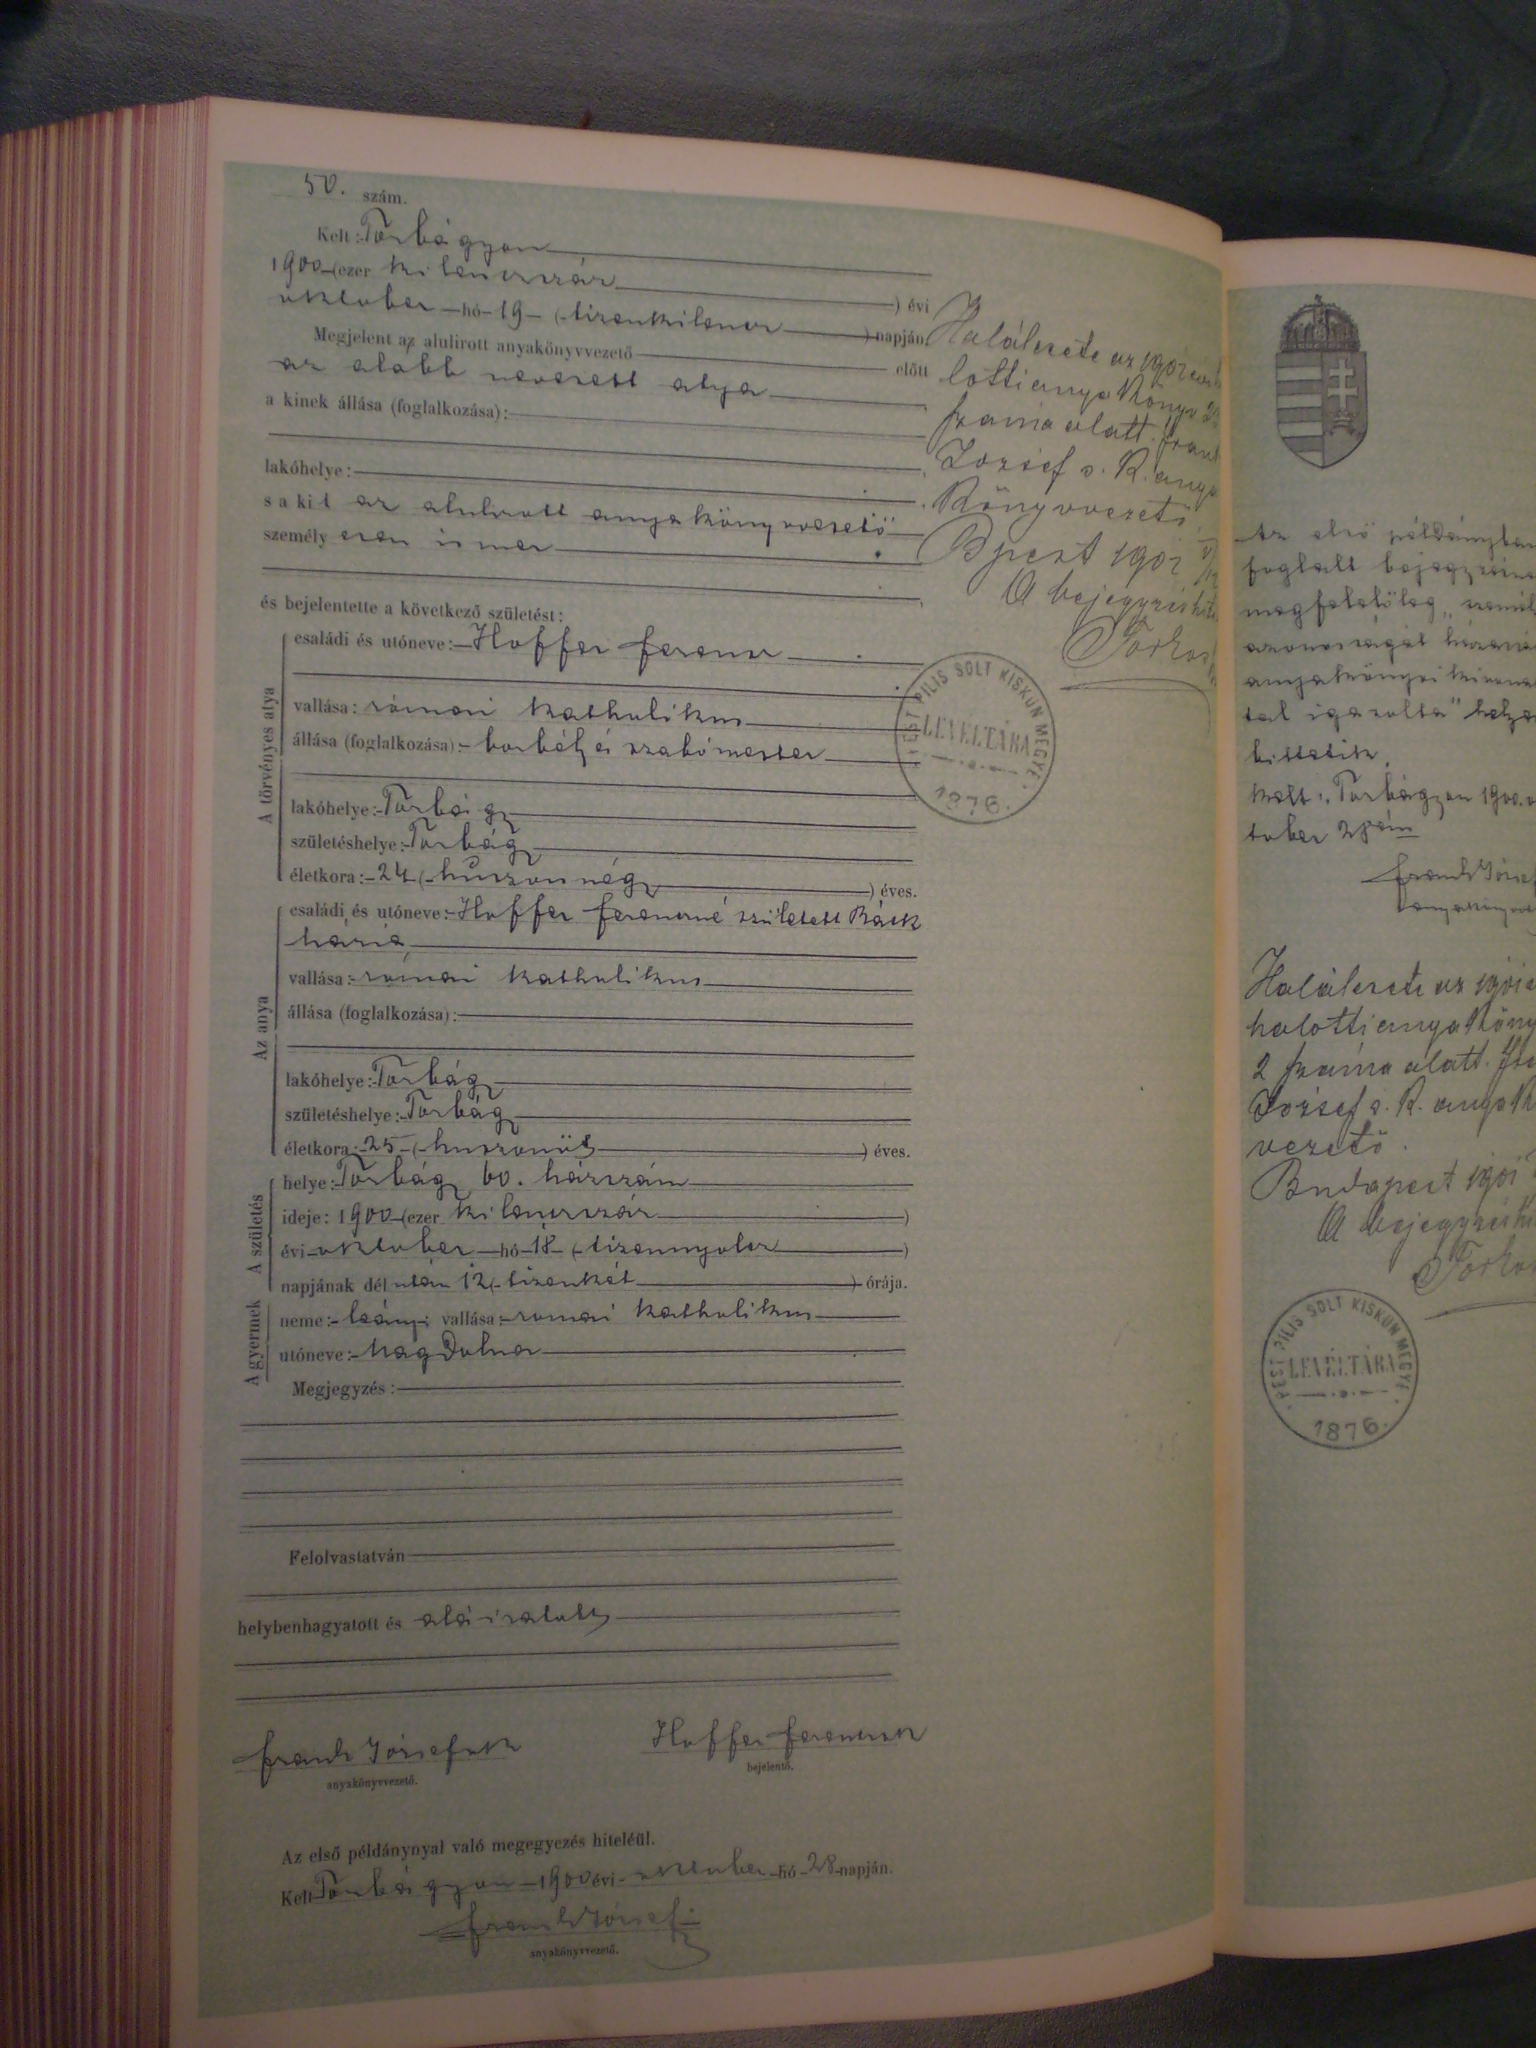 50. szám.
Kelt: Torbágyon
1900 (ezer kilenczszáz ) évi
oktober hó 19 (tizenkilencz ) napján.
Megjelent az alulirott anyakönyvvezető előtt
az alább nevezett atya
a kinek állása (foglalkozása):
lakóhelye:
s a kit az alulirott anyakönyvvezető
személyesen ismer
és bejelentette a következő születést:
A törvényes atya
családi és utóneve: Hoffer Ferencz
vallása: római katholikus
állása (foglalkozása): borbély és szabómester
lakóhelye: Torbágy
születéshelye: Torbágy
életkora: 24 (huszonnégy ) éves.
Az anya
családi és utóneve: Hoffer Ferenczné született
Mária
vallása: római katholikus
állása (foglalkozása):
lakóhelye: Torbágy
születéshelye: Torbágy
életkora: 25 (huszonöt ) éves.
A születés
helye: Torbágy 60. házszám
ideje: 1900 (ezer kilenczszáz )
évi oktober hó 18 (tizennyolcz )
napjának délután 12 (tizenkét ) órája.
A gyermek
neme: leány; vallása: romai katholikus
utóneve: Magdolna
Megjegyzés:
Felolvastatván
helybenhagyatott és aláiratott
Frank József
anyakönyvvezető.
Hoffer Ferencz
bejelentő.
Az első példánynyal való megegyezés hiteléül.
Kelt Torbágyon 1900 évi oktober hó 28 napján.
Frank József
anyakönyvvezető.
Halálesete az
lotti anyakönyv
száma alatt.
József s. k. anya
könyvvezető.
Bpest
A bejegyzés
PEST PILIS SOLT KISKUN MEGYE
LEVÉLTÁRA
1876.
Az első példányban
foglalt
megfelelőleg
tal igazolta"
Kelt: Torbágyon 1900. o
tober 28 án
Frank József
Halálesete az
halotti anyaköny
2 száma alatt.
József s. k. anyak
vezető.
Budapest
A bejegyzés
PEST PILIS SOLT KISKUN MEGYE
LEVÉLTÁRA
1876.